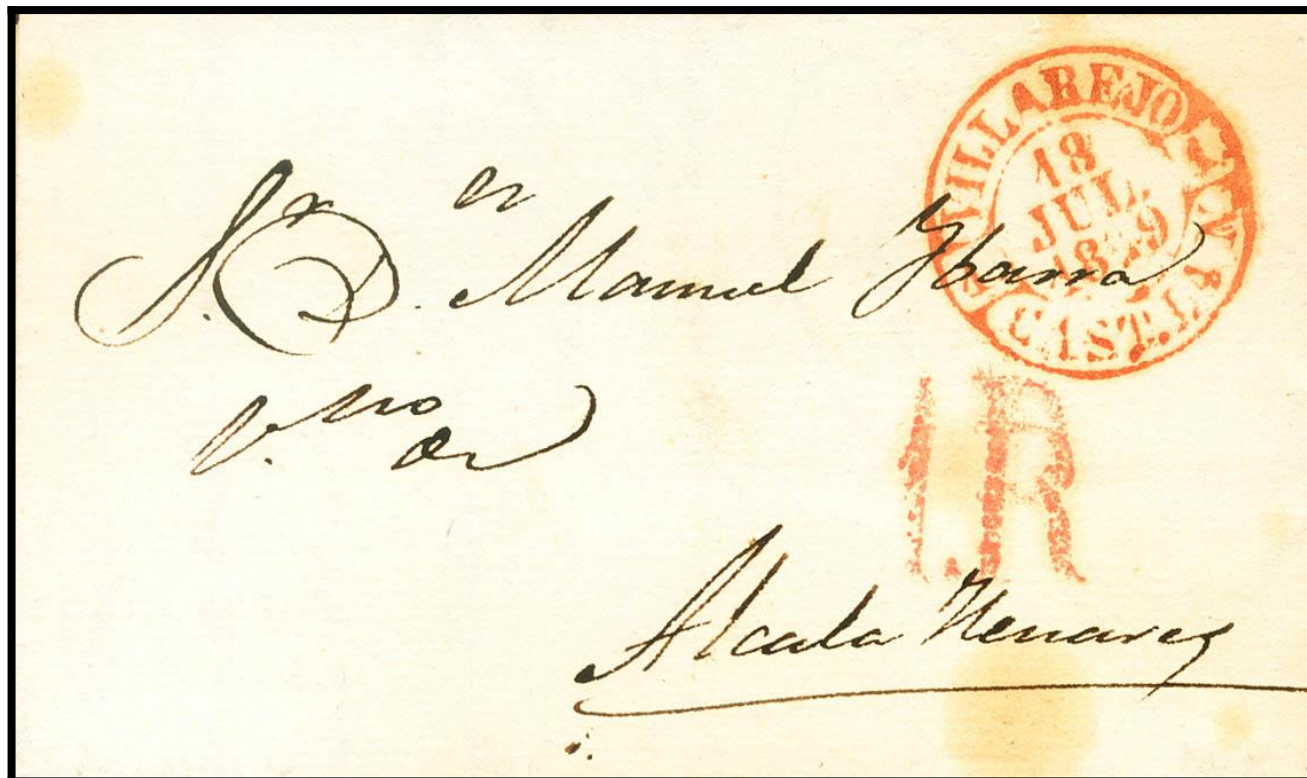 VILLAREJO
18
JUL.
CAST. LA N.
S.r D.n Manuel Ybarra
1.R
V.no de
Alcala Henares